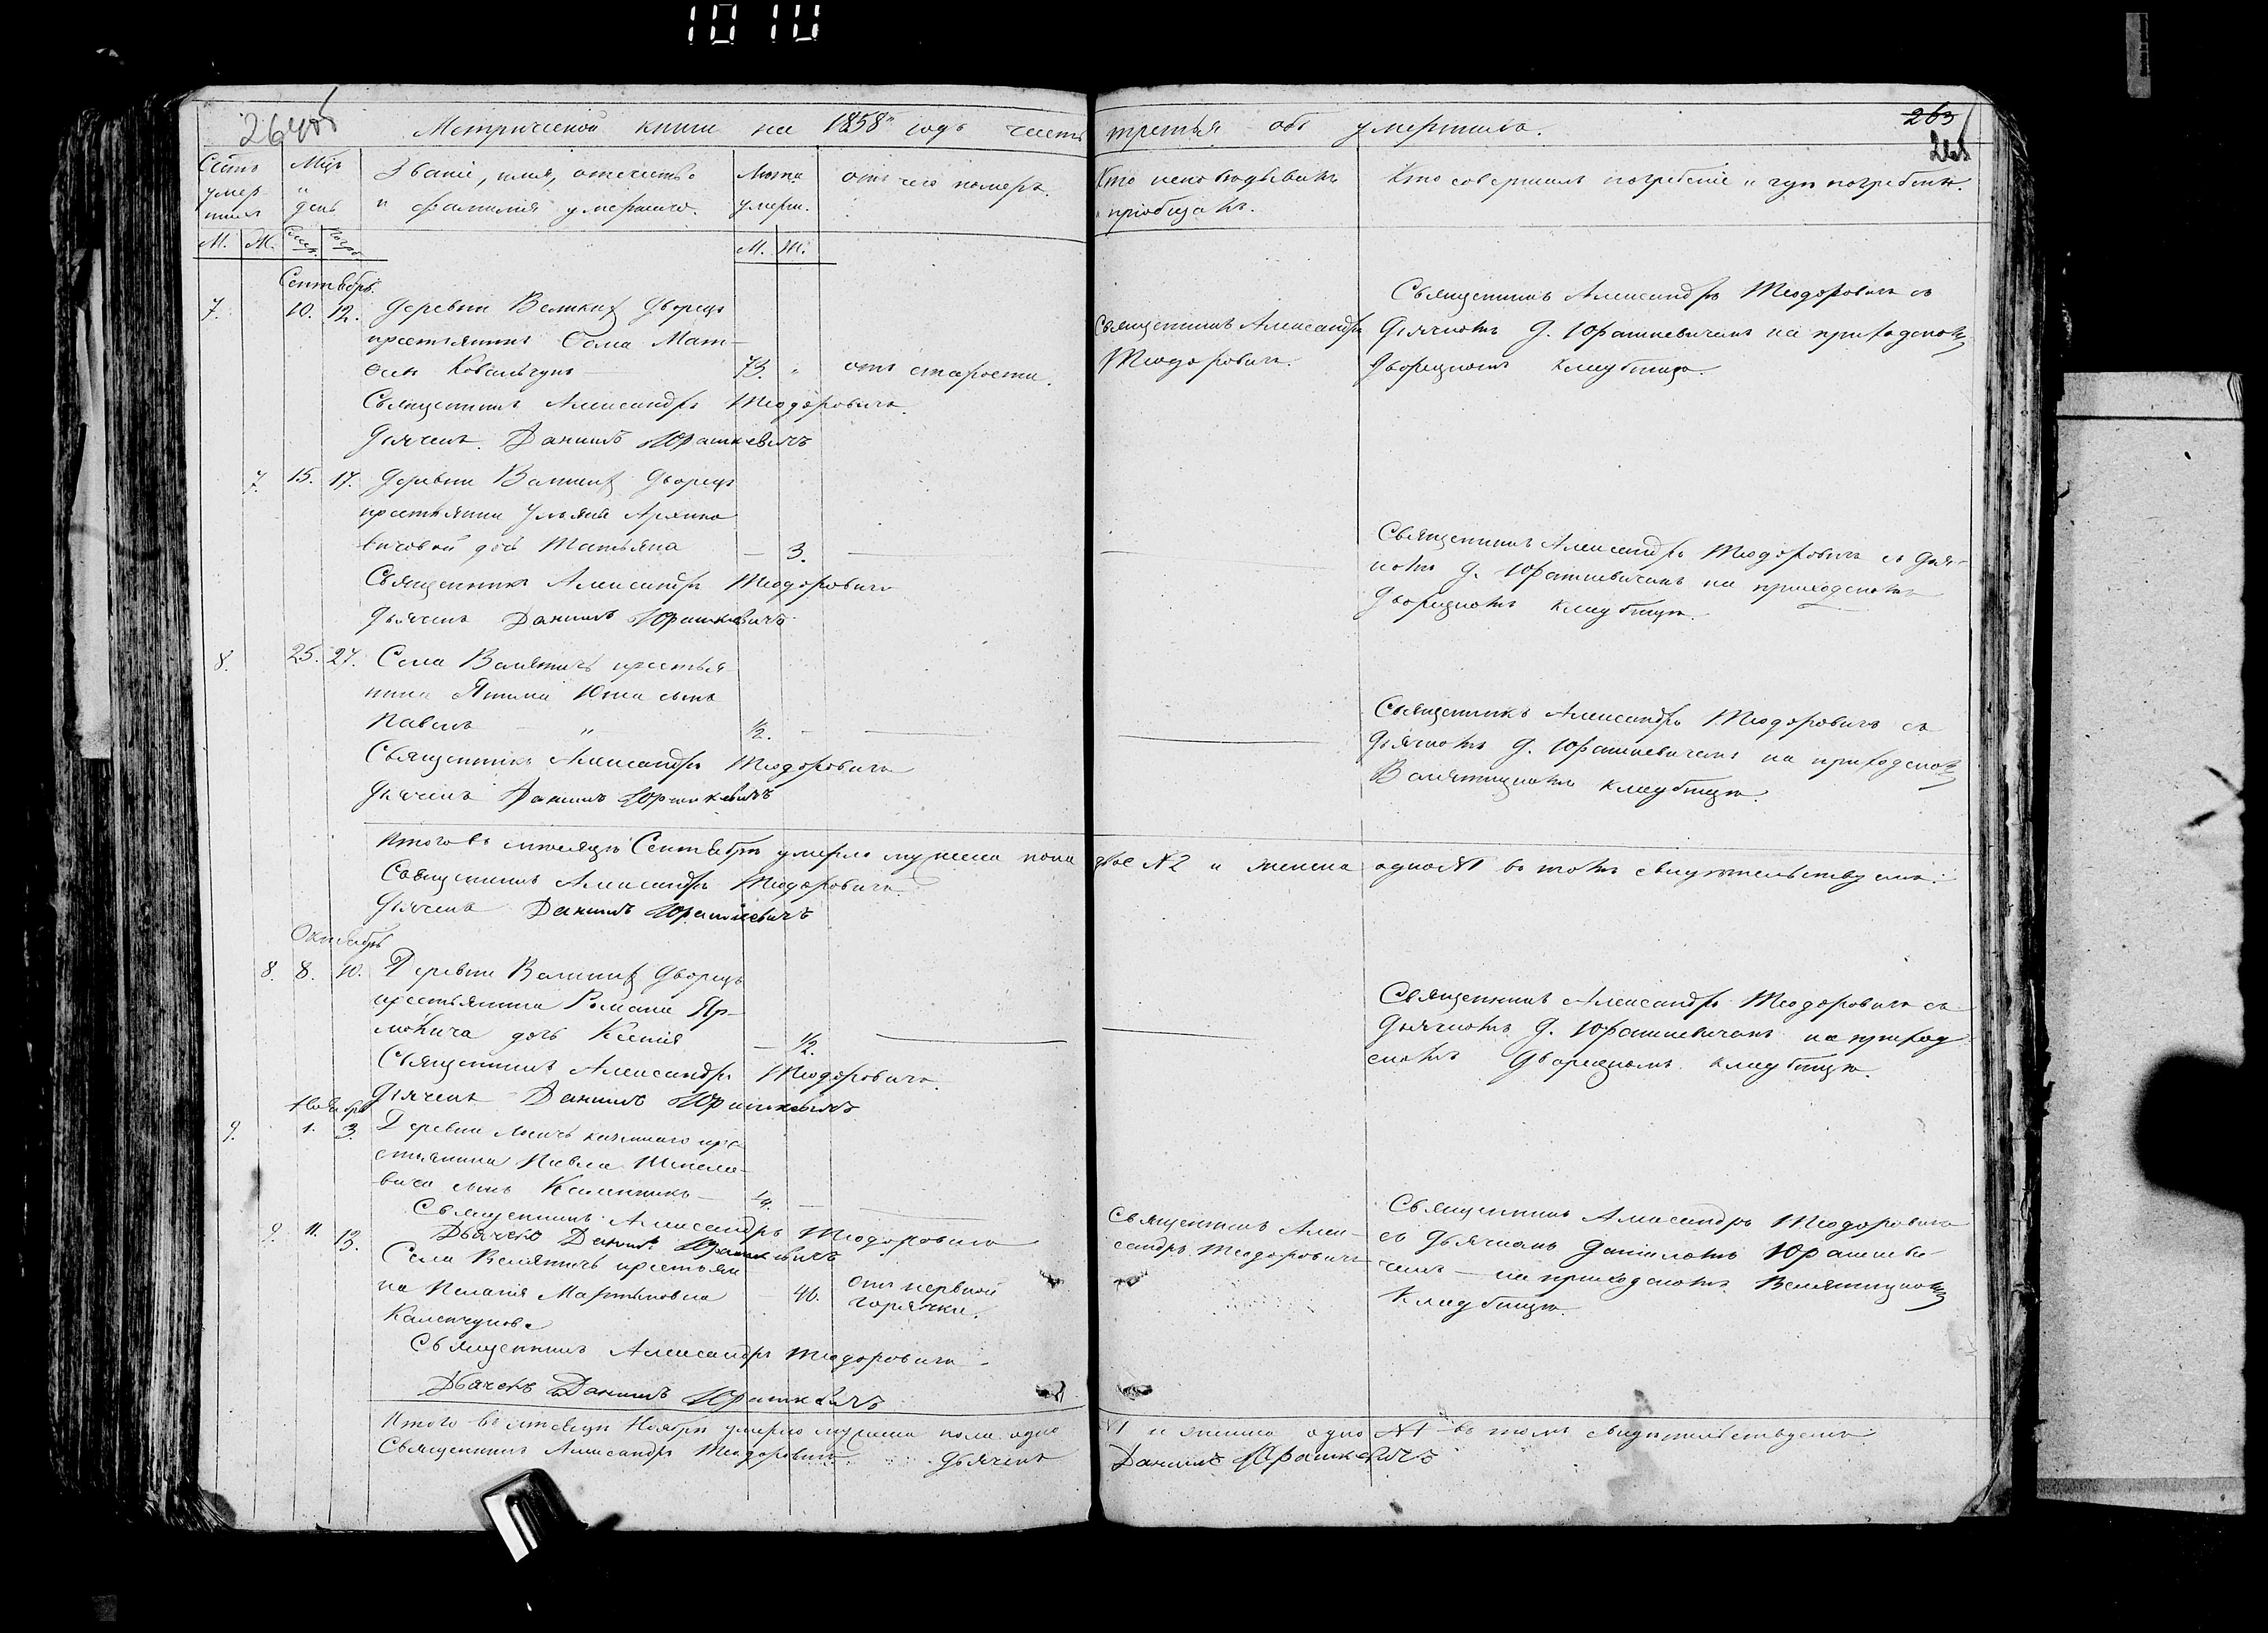 1010
264об
Метрической книги на 1858й годъ часть третья объ умершихъ.
263
Счетъ умер-шихъ
Мцъ и день
Званіе, имя, отечество и фамилія умершаго.
Лета умерш.
отъ чего померъ.
Кто исповѣдывалъ и пріобщалъ.
Кто совершалъ погребеніе и гдѣ погребенъ.
М. Ж. М. Ж.
Сентябрь.
7. 10. 12. Деревни Великихъ Дворецъ
крестьянинъ Ѳома Мат-
Ковальчукъ 73. " отъ старости.
Священникъ Александръ Теодоровичъ.
Дьячекъ Даниилъ Юрашкевичъ
Священникъ Александръ
Теодоровичъ.
Священникъ Александръ Теодоровичъ съ
дьячкомъ Д. Юрашкевичемъ на приходскомъ
Дворецкомъ кладбищѣ.
7. 15. 17. Деревни Великихъ Дворецъ
крестьянина
дочь Татьяна — 3. —
Священникъ Александръ Теодоровичъ
Дьячекъ Даниилъ Юрашкевичъ
Священникъ Александръ Теодоровичъ съ дьяч-
комъ Д. Юрашкевичемъ на приходскомъ
Дворецкомъ кладбищѣ.
8. 25. 27. Села Велятичъ крестья-
нина Якима Юхна сынъ
Павелъ " ½. -
Священникъ Александръ Теодоровичъ
Дьячекъ Даниилъ Юрашкевичъ
Священникъ Александръ Теодоровичъ съ
дьячкомъ Д. Юрашкевичемъ на приходскомъ
Велятицкомъ кладбищѣ.
Итого въ месяцѣ Сентябрѣ умерло мужеска пола двое №2 и женска одно №1 въ томъ свидѣтельствуемъ:
Священникъ Александръ Теодоровичъ
Дьячекъ Даниилъ Юрашкевичъ
Октябрь
8. 8. 10. Деревни Великихъ Дворецъ
крестьянина Романа Яр-
дочь Ксенія — ½.
Священникъ Александръ Теодоровичъ.
Дьячекъ Даниилъ Юрашкевичъ
Священникъ Александръ Теодоровичъ съ
дьячкомъ Д. Юрашкевичемъ на приход-
скомъ Дворецкомъ кладбищѣ.
Ноябрь
9. 1. 3. Деревни казеннаго кре-
стьянина Павла
сынъ Каленикъ — ¼.
Священникъ Александръ Теодоровичъ
Дьячекъ Даниилъ Юрашкевичъ
9. 11. 13. Села Велятичъ крестьян-
ка Пелагія Мартиновна — 40. отъ нервной
горячки.
Священникъ Александръ Теодоровичъ.
Дьячекъ Даниилъ Юрашкевичъ
Священникъ Алек-
сандръ Теодоровичъ
Священникъ Александръ Теодоровичъ
съ дьячкомъ Даніиломъ Юрашкеви-
чемъ — на приходскомъ Велятицкомъ
кладбищѣ.
Итого въ месяцѣ Ноябрѣ умерло мужеска пола одно №1 и женска одно №1 въ томъ свидѣтельствуемъ.
Священникъ Александръ Теодоровичъ Дьячекъ Даниилъ Юрашкевичъ